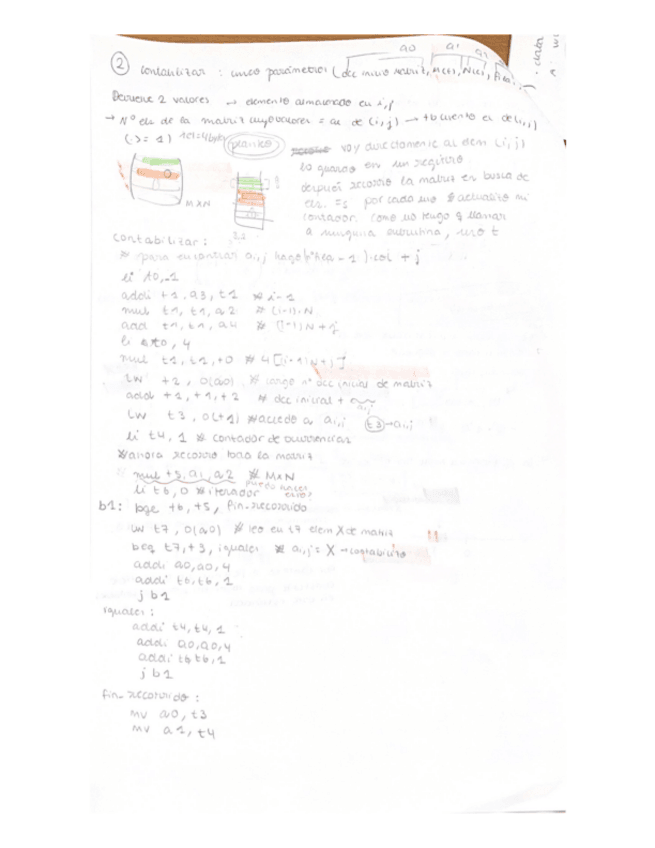 a0 a1 a2
② contabilizar : cinco parámetros ( dcc inicio matriz, M(c), N(c),
. data
Devuelve 2 valores → elemento almacenado en i,j
→ Nº els de la matriz cuyo valores = al de (i,j) → tb cuento el de (i,j)
(·>= 1) 1el=4bytes planteo voy directamente al elem (i,j)
lo guardo en un registro
después recorro la matriz en busca de
els. =1 por cada uno actualizo mi
MXN
contador. como no tengo q llamar
a ninguna subrutina, uso t
contabilizar :
# para encontrar ai,j hago (nº fila - 1) · col + j
li t0,-1
addi t1, a3, t1 # i-1
mul t1, t1, a2 # (i-1)·N
add t1, t1, a4 # (i-1)N + j
li t0, 4
mul t1, t1, t0 # 4[(i-1)N+j]
lw t2, 0(a0) # cargo nº dcc inicial de matriz
add t1, t1, t2 # dcc inicial +
ai,j
lw t3, 0(t1) # accedo a ai,j t3→ai,j
li t4, 1 # contador de ocurrencias
# ahora recorro toda la matriz
mul t5, a1, a2 # MxN
li t6, 0 # iterador puedo hacer esto?
b1: bge t6, t5, fin_recorrido
lw t7, 0(a0) # leo en t7 elem X de matriz
beq t7, t3, iguales # ai,j = X → contabilizo
addi a0,a0,4
addi t6,t6,1
j b1
iguales :
addi t4,t4,1
addi a0,a0,4
addi t6 t6,1
j b1
fin_recorrido :
mv a0, t3
mv a1, t4